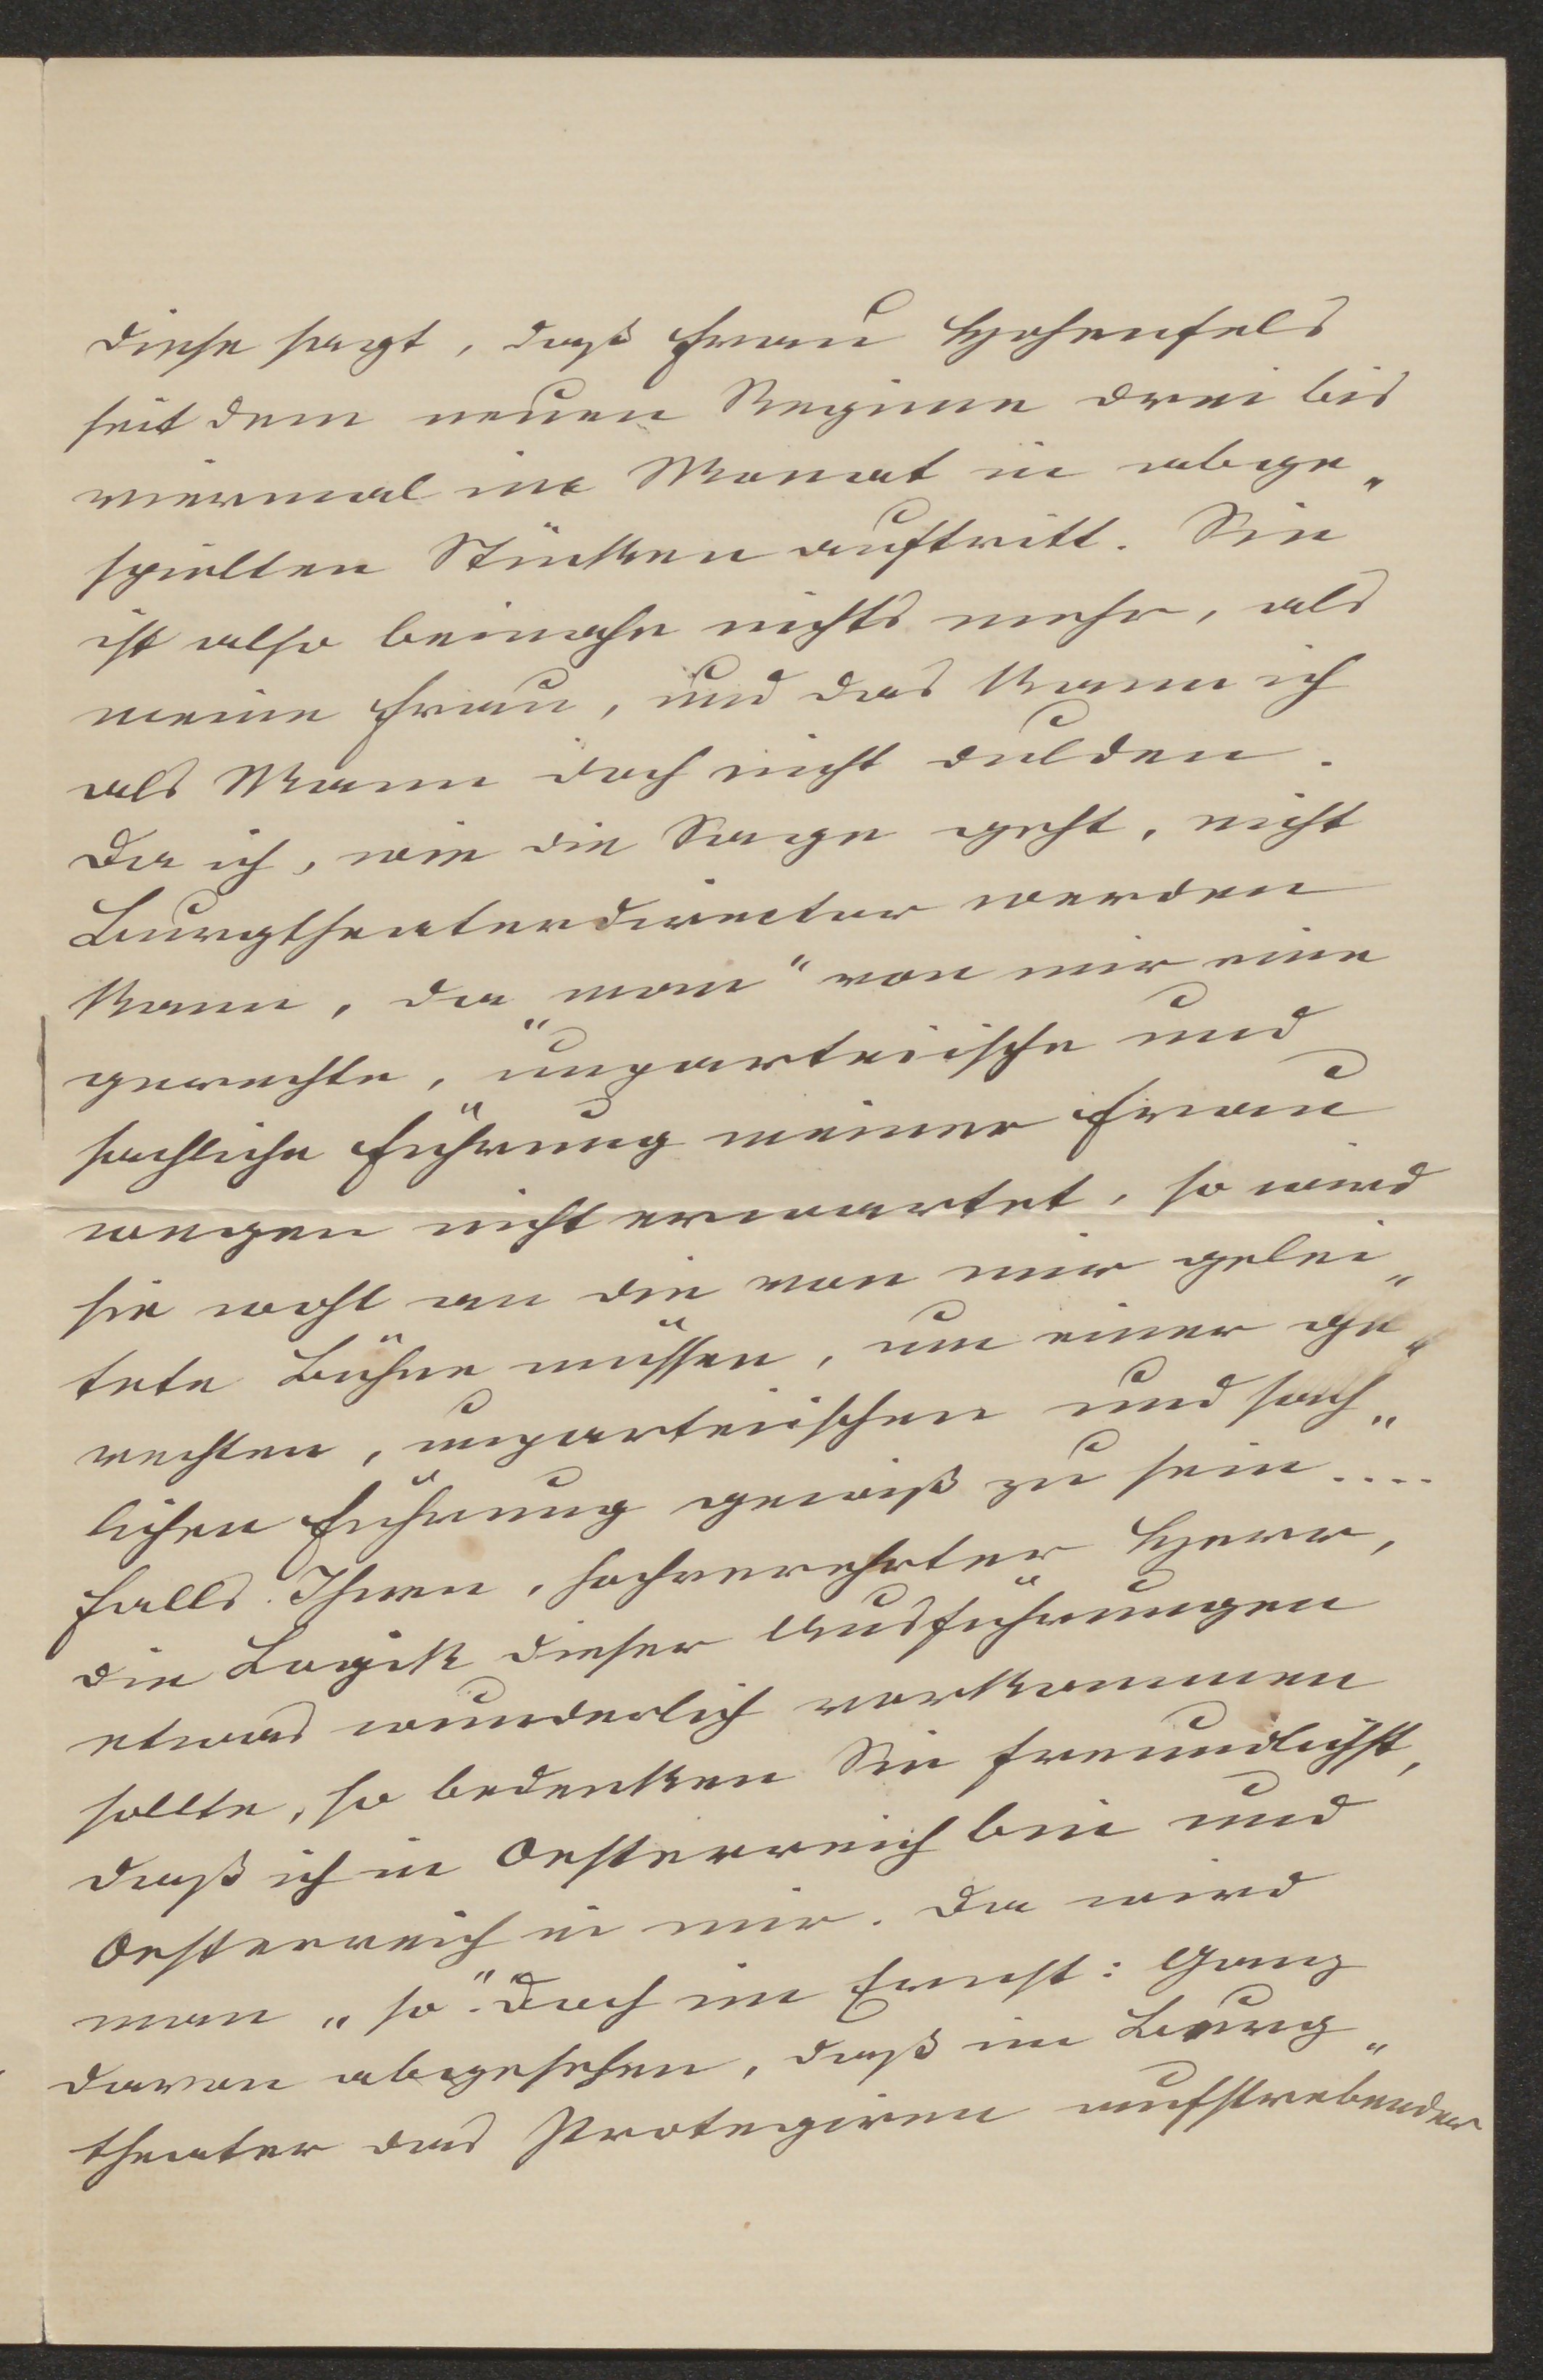 diese sagt, daß Frau Hohenfels
seit dem neuen Regime drei bis
viermal im Monat in abge„
spielten Stücken auftritt. Sie
ist also beinahe nichts mehr, als
meine Frau, und das kann ich
als Mann doch nicht dulden.
Da ich, wie die Sage geht, nicht
Burgtheaterdirector werden
kann, da „man“ von mir eine
gerechte, unparteiische und
sachliche Führung meiner Frau
wegen nicht erwartet, so wird
sie wohl an die von mir gelei„
tete Bühne müssen, um einer ge„
rechten, unparteiischen und sach„
lichen Führung gewiß zu sein....
Falls Ihnen, hochverehrter Herr,
die Logik dieser Ausführungen
etwas wunderlich vorkommen
sollte, so bedenken Sie freundlichst,
daß ich in Oesterreich bin und
Oesterreich in mir. Da wird
man „so“. Doch im Ernst: Ganz
davon abgesehen, daß im Burg„
theater das Protegiren aufstrebender